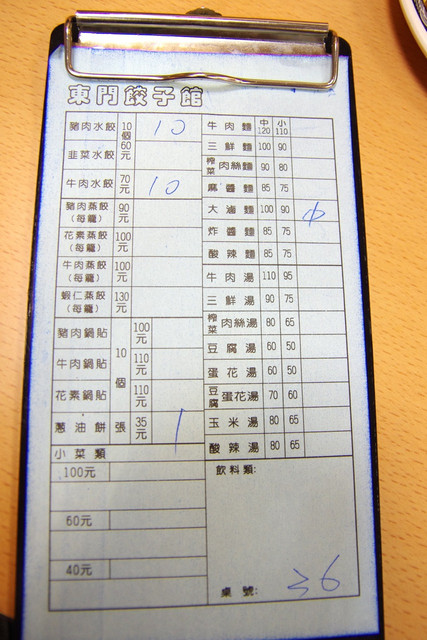 東門餃子館
豬肉水餃 10個 60元 10
韭菜水餃
牛肉水餃 70元 10
豬肉蒸餃(每籠) 90元
花素蒸餃(每籠) 100元
牛肉蒸餃(每籠) 100元
蝦仁蒸餃(每籠) 130元
豬肉鍋貼 10個 100元
牛肉鍋貼 110元
花素鍋貼 110元
蔥油餅 張 35元 1
小菜類
100元
60元
40元
牛肉麵 中120 小110
三鮮麵 100 90
榨菜肉絲麵 90 80
麻醬麵 85 75
大滷麵 100 90 中
炸醬麵 85 75
酸辣麵 85 75
牛肉湯 110 95
三鮮湯 90 75
榨菜肉絲湯 80 65
豆腐湯 60 50
蛋花湯 60 50
豆腐蛋花湯 70 60
玉米湯 80 65
酸辣湯 80 65
飲料類:
桌號: 36